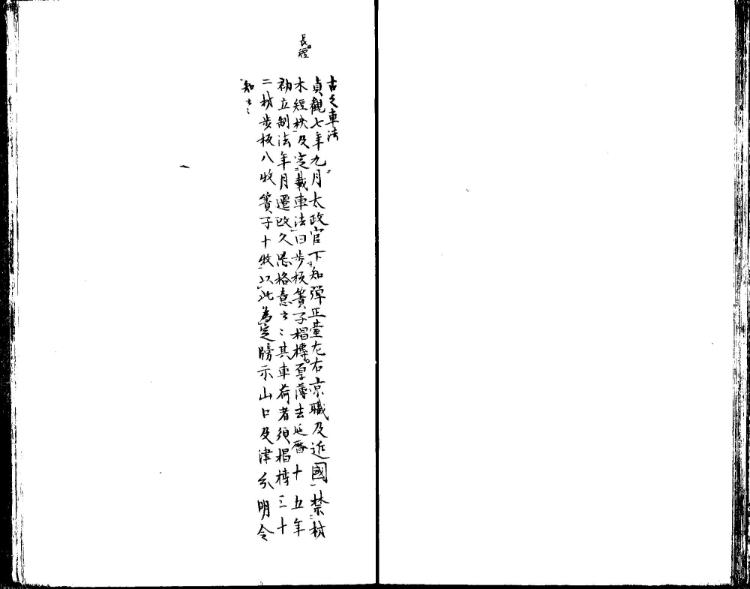 長櫻
古之車法
貞觀七年九月太政官下知彈正臺左右京職及近國禁材
木短狹及定載車法曰步板簀子榲榑厚薄去延曆十五年
初立制法年月遷改久忘格意云々其車荷者須榲榑三十
二材步板八枚簀子十枚以此為定牓示山口及津分明令
知云々